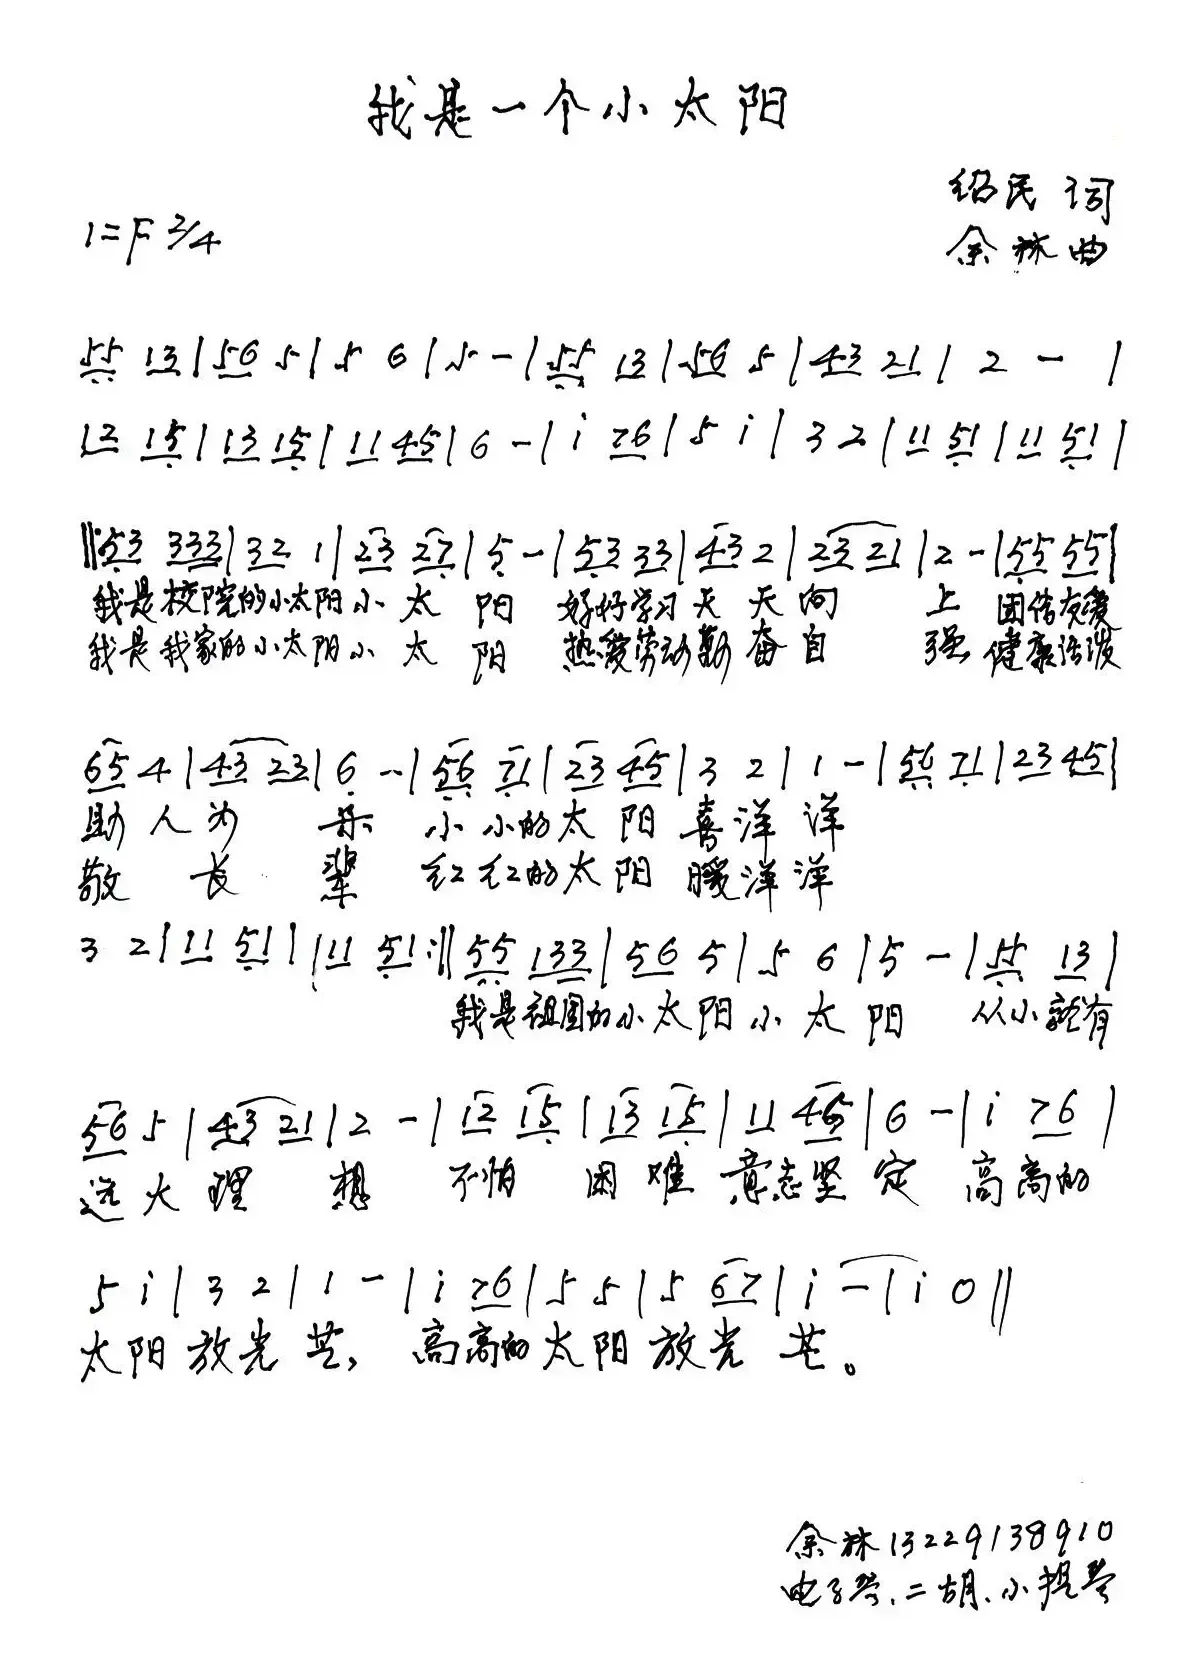 我是一个小太阳
绍民 词
1=F 2/4
余林曲
55 13|56 5|5 6|5 -|55 13|56 5|43 21|2 - |
12 15|13 15|11 45|6 -|i 76|5 i|3 2|11 51|11 51|
‖:53 333|32 1|23 27|5 -|53 33|43 2|23 21|2 -|55 55|
我是校院的小太阳小 太 阳 好好学习天 天 向 上 团结友爱
我是我家的小太阳小 太 阳 热爱劳动勤 奋 自 强 健康活泼
65 4|43 23|6 -|56 71|23 45|3 2|1 -|56 71|23 45|
助 人 为 乐 小 小的太 阳 喜洋 洋
敬 长 辈 红 红的太 阳 暖洋 洋
3 2|11 51|11 51:‖55 133|56 5|5 6|5 -|55 13|
我是祖国的小太阳小 太 阳 从小就有
56 5|43 21|2 -|12 15|13 15|11 45|6 -|i 76|
远 大 理 想 不怕 困 难 意志坚 定 高高的
5 i|3 2|1 -|i 76|5 5|5 67|i -|i 0‖
太阳 放光 芒, 高高的太阳 放光 芒。
余林13229138910
电子琴、二胡、小提琴